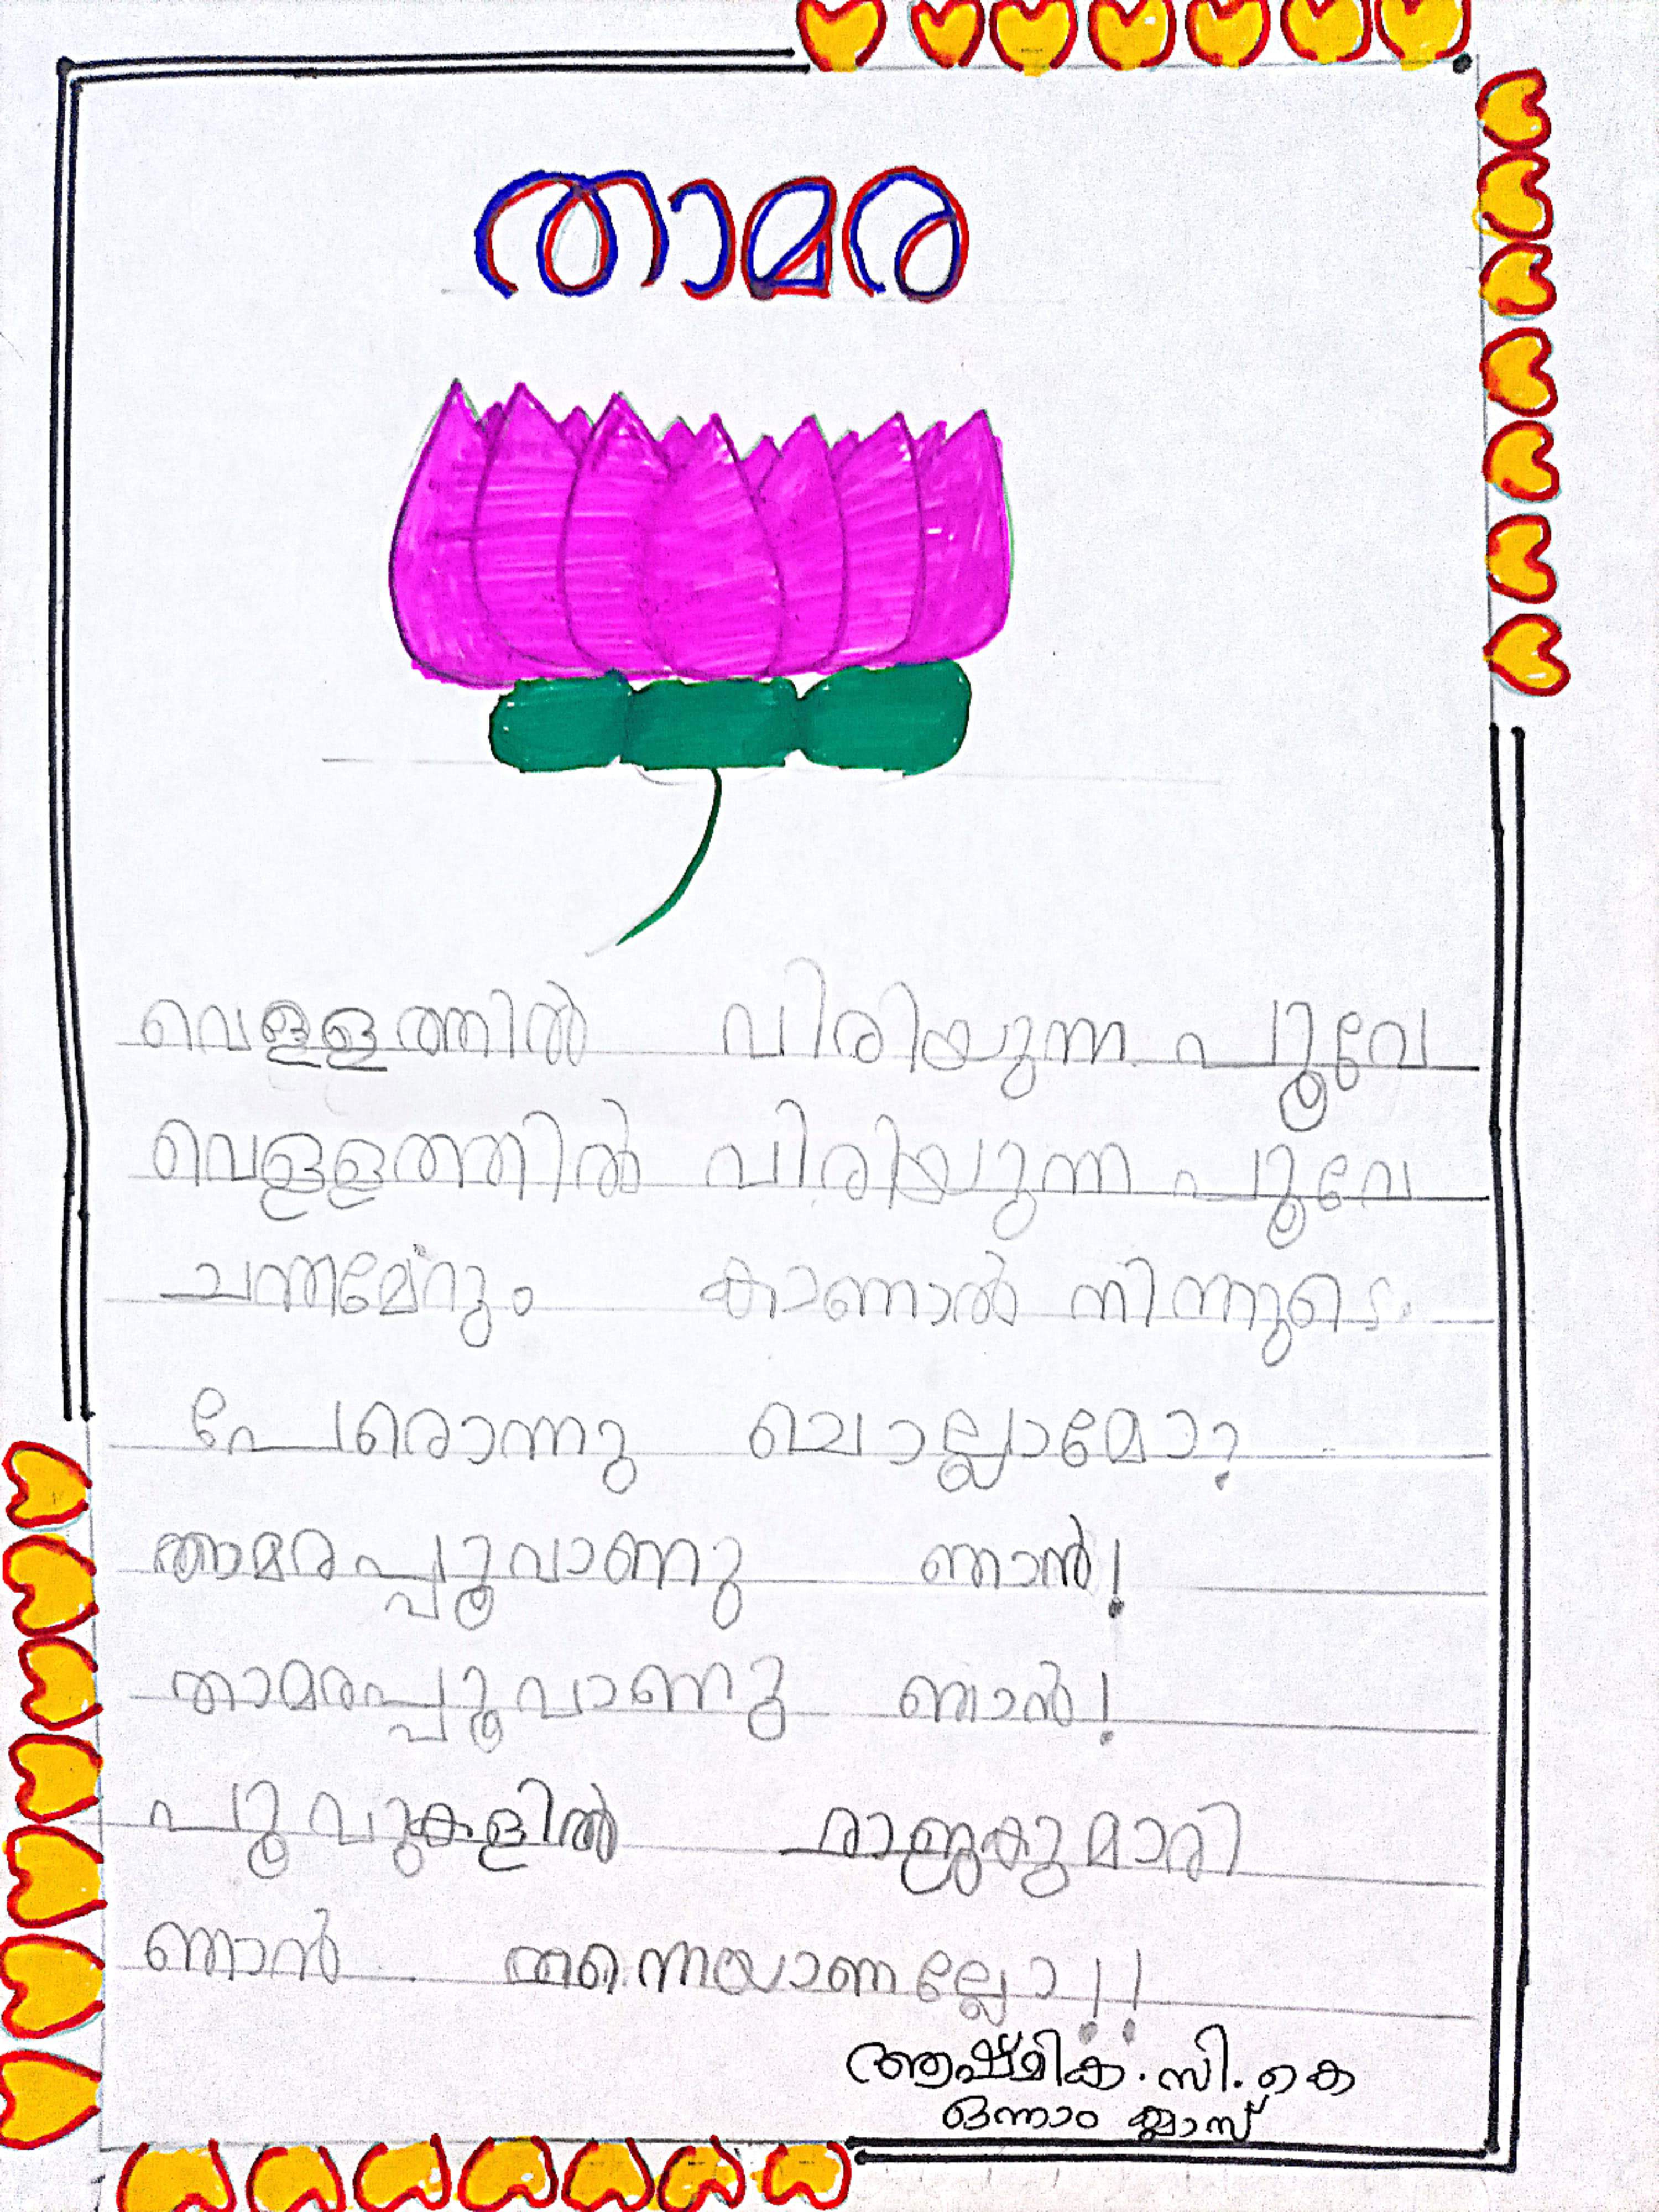 താമര
വെള്ളത്തിൽ വിരിയുന്ന പൂവേ
വെള്ളത്തിൽ വിരിയുന്ന പൂവേ
ചന്തമേറും കാണാൽ നിന്നുടെ
പേരൊന്നു ചൊല്ലാമോ?
താമരപ്പൂവാണു ഞാൻ!
താമരപ്പൂവാണു ഞാൻ!
പൂവുകളിൽ രാജകുമാരി
ഞാൻ തന്നെയാണല്ലോ!!
ആഷ്മിക.സി.കെ
ഒന്നാം ക്ലാസ്